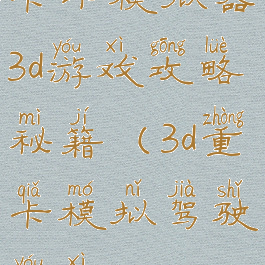 卡车模拟器
yóu xì gōng lüè
3d游戏攻略
mì jí zhòng
秘籍(3d重
qiǎ mó nǐ jià shǐ
卡模拟驾驶
yóu xì